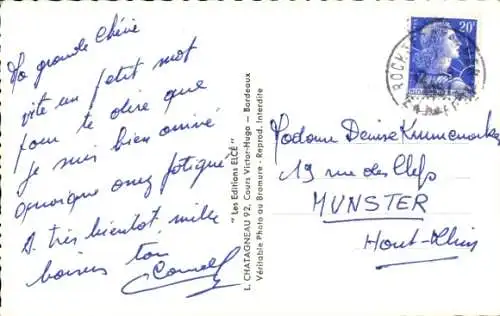 Ma grande Chérie
vite un petit mot
pour te dire que
je suis bien arrivé
quoique assez fatigué.
A très bientôt mille
baisers ton
"Les Editions ELCÉ"
L. CHATAGNEAU 92, Cours Victor-Hugo — Bordeaux
Véritable Photo au Bromure - Reprod. Interdite
20F
Madame Denise
19 rue des Clefs
MUNSTER
Haut-Rhin